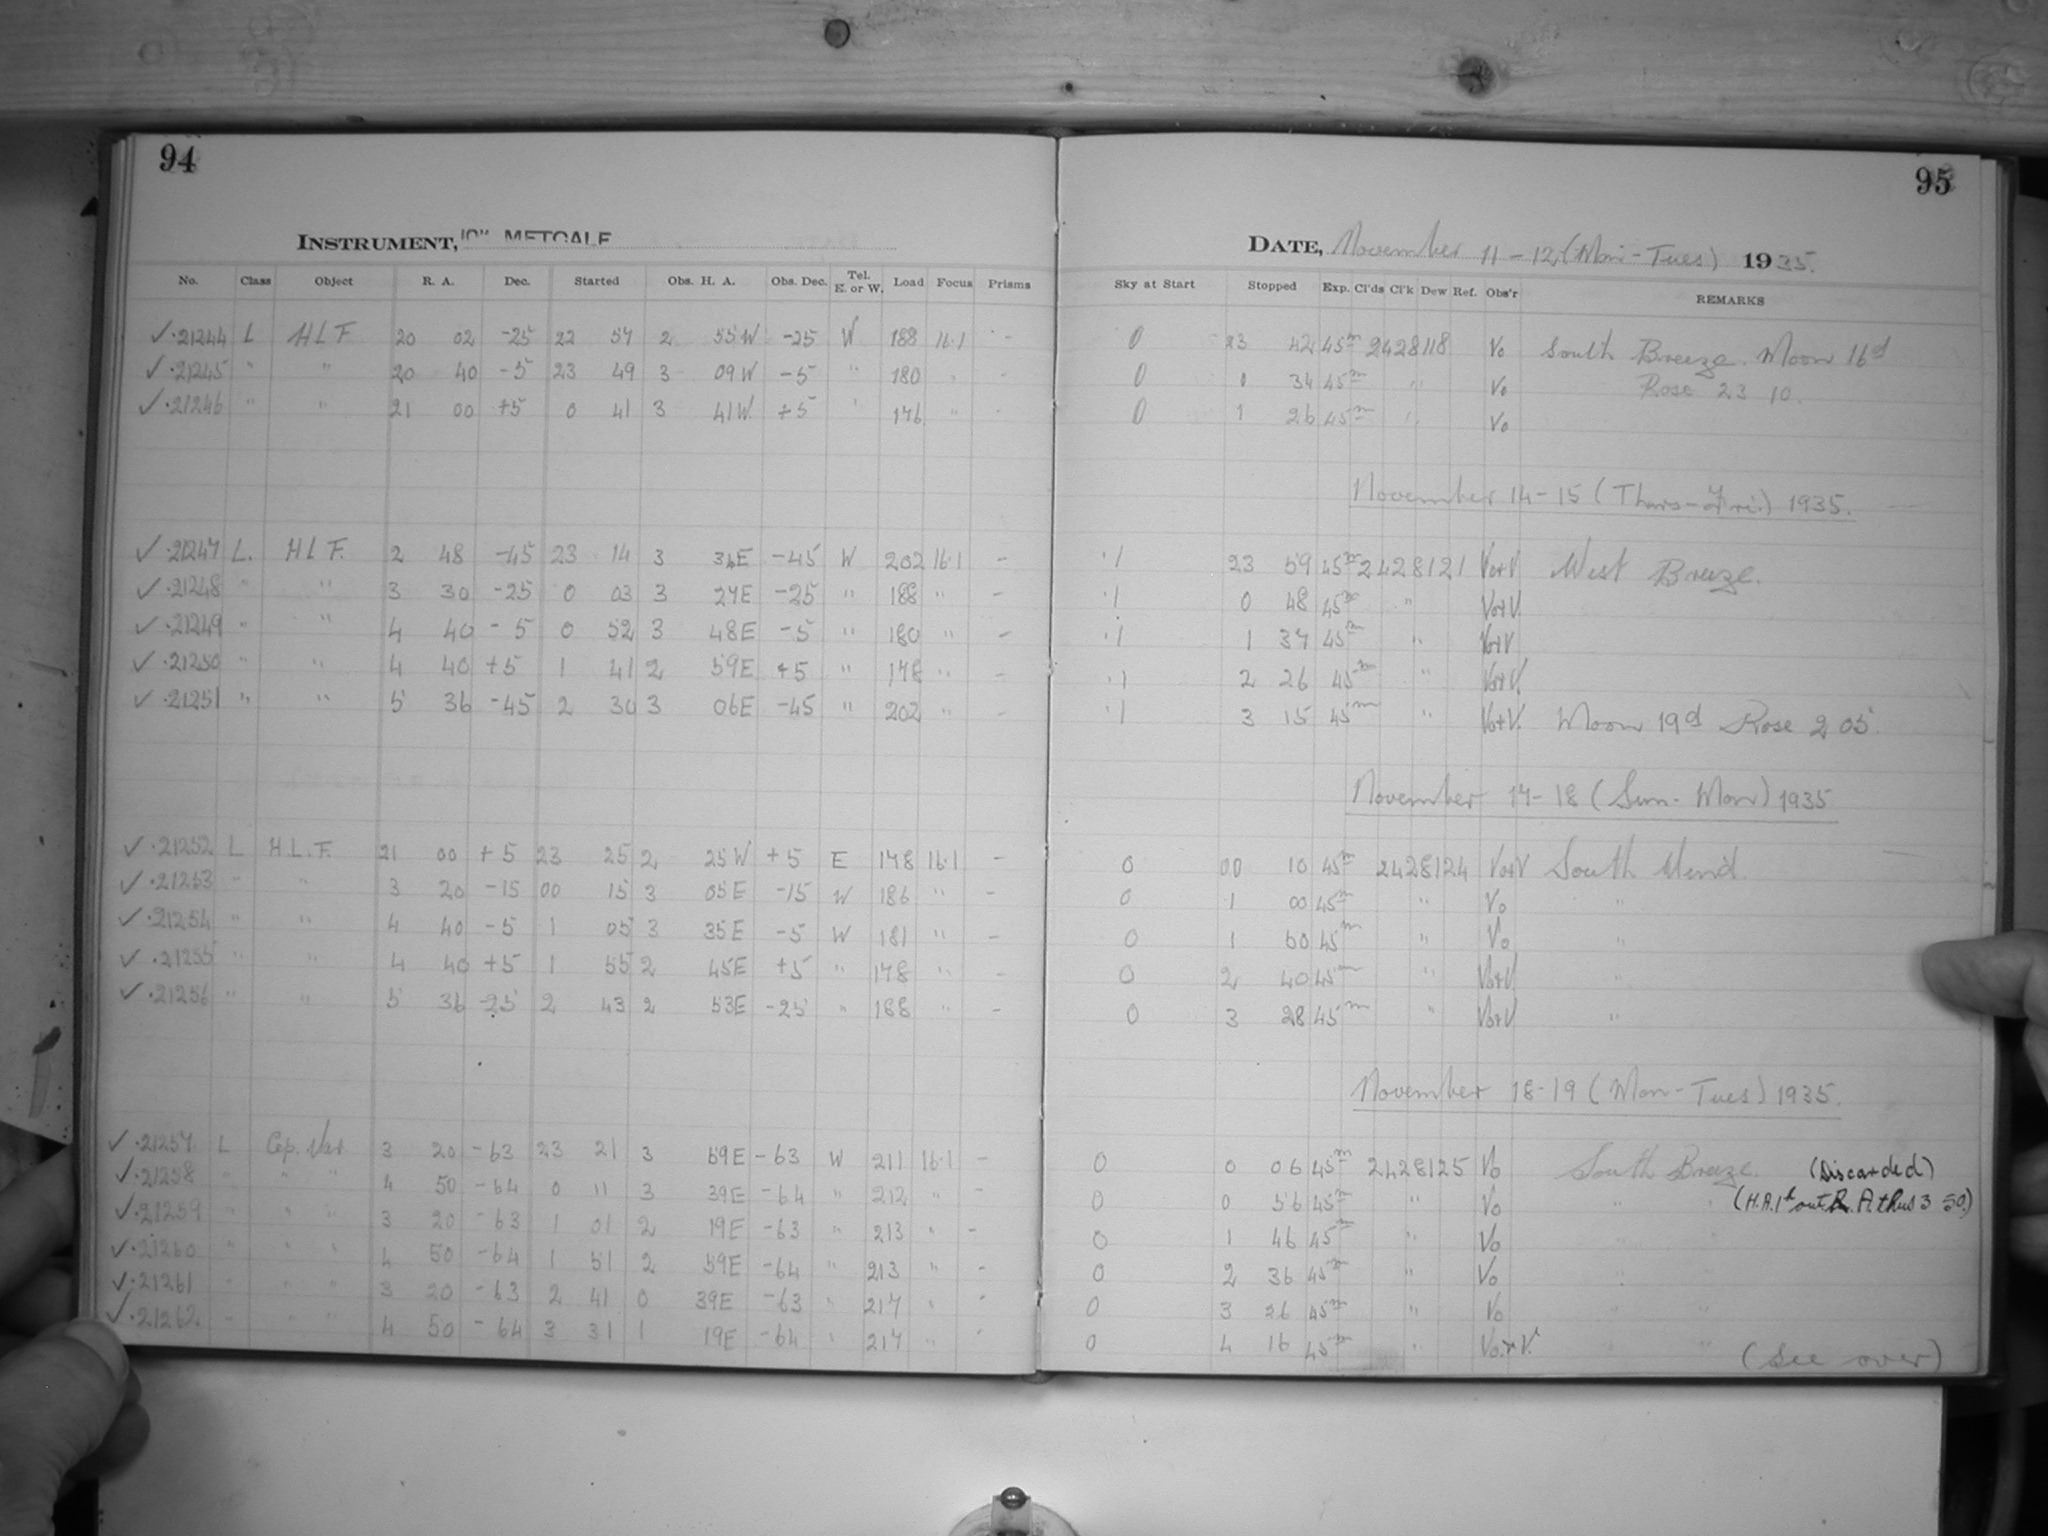 94
95
INSTRUMENT, 10" METCALF
DATE, November 11 - 12 (Mon - Tues) 1935.
No. Class Object R. A. Dec. Started Obs. H. A. Obs. Dec. Tel. E. or W. Load Focus Prisms Sky at Start Stopped Exp. Cl'ds Cl'k Dew Ref. Obs'r REMARKS
✓ .21244 L H L F 20 02 -25 22 57 2 55 W -25 W 188 16.1 - 0 23 42 45m 2428118 Vo South Breeze. Moon 16d
✓ .21245 " " 20 40 -5 23 49 3 09 W -5 " 180 " - 0 0 34 45m " Vo Rose 23 10.
✓ .21246 " " 21 00 +5 0 41 3 41 W +5 " 176 " - 0 1 26 45m " Vo
November 14 - 15 (Thurs - Fri.) 1935.
✓ .21247 L. H L F. 2 48 -45 23 14 3 34E -45 W 202 16.1 - .1 23 59 45m 2428121 Vo+V West Breeze.
✓ .21248 " " 3 30 -25 0 03 3 27E -25 " 188 " - .1 0 48 45m " Vo+V.
✓ .21249 " " 4 40 -5 0 52 3 48E -5 " 180 " - .1 1 37 45m " Vo+V
✓ .21250 " " 4 40 +5 1 41 2 59E +5 " 178 " - .1 2 26 45m " Vo+V.
✓ .21251 " " 5 36 -45 2 30 3 06E -45 " 202 " - .1 3 15 45m " Vo+V. Moon 19d Rose 2 05.
November 17 - 18 (Sun - Mon) 1935
✓ .21252 L H.L.F. 21 00 +5 23 25 2 25 W +5 E 178 16.1 - 0 00 10 45m 2428124 Vo+V South Wind.
✓ .21253 " " 3 20 -15 00 15 3 05 E -15 W 186 " - 0 1 00 45m " Vo "
✓ .21254 " " 4 40 -5 1 05 3 35 E -5 W 181 " - 0 1 50 45m " Vo "
✓ .21255 " " 4 40 +5 1 55 2 45E +5 " 178 " - 0 2 40 45m " Vo+V. "
✓ .21256 " " 5 36 -25 2 43 2 53E -25 " 188 " - 0 3 28 45m " Vo+V "
November 18 - 19 (Mon - Tues) 1935.
✓ .21257 L Cep. Var 3 20 -63 23 21 3 59E -63 W 211 16.1 - 0 0 06 45m 2428125 Vo South Breeze. (Discarded)
✓ .21258 " " " 4 50 -64 0 11 3 39E -64 " 212 " - 0 0 56 45m " Vo " " (H.A. 1h out R.A. thus 3 50.)
✓ .21259 " " " 3 20 -63 1 01 2 19E -63 " 213 " - 0 1 46 45m " Vo " "
✓ .21260 " " " 4 50 -64 1 51 2 59E -64 " 213 " - 0 2 36 45m " Vo " "
✓ .21261 " " " 3 20 -63 2 41 0 39E -63 " 217 " - 0 3 26 45m " Vo " "
✓ .21262. " " " 4 50 -64 3 31 1 19E -64 " 217 " - 0 4 16 45m " Vo.+V. " "
(See over)